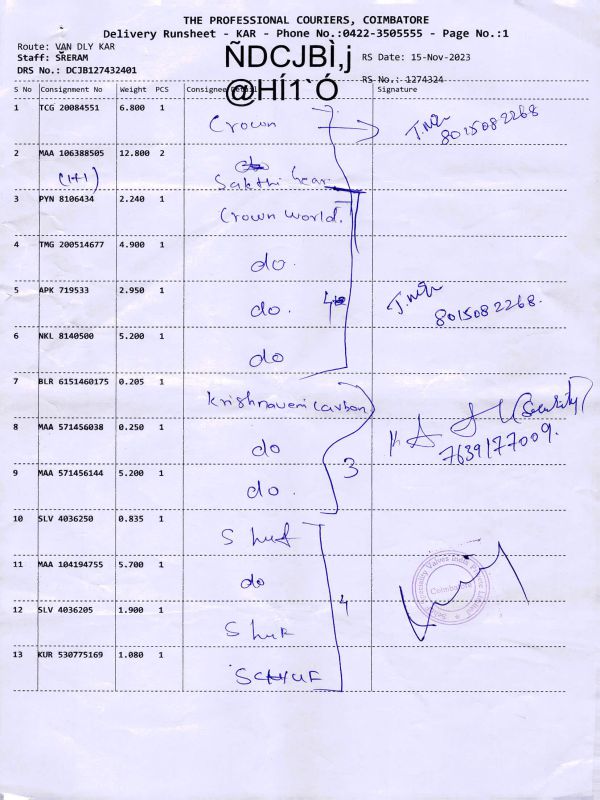 THE PROFESSIONAL COURIERS, COIMBATORE
Delivery Runsheet - KAR - Phone No.:0422-3505555 - Page No.:1
Route: VAN DLY KAR
Staff: SRERAM
DRS No.: DCJB127432401
ÑDCJBÌ,j
@HÍ1`Ó
RS Date: 15-Nov-2023
RS No.: 1274324
S No Consignment No Weight PCS Consignee Detail Signature
1 TCG 20084551 6.800 1 Crown 8015082268
2 MAA 106388505 12.800 2 do
(1+1) Sakthi Gear
3 PYN 8106434 2.240 1 Crown world.
4 TMG 200514677 4.900 1 do.
5 APK 719533 2.950 1 do. 4 8015082268.
6 NKL 8140500 5.200 1 do
7 BLR 6151460175 0.205 1 Krishnaveni Carbon (Security)
8 MAA 571456038 0.250 1 do 7639177009.
9 MAA 571456144 5.200 1 do. 3
10 SLV 4036250 0.835 1
11 MAA 104194755 5.700 1 do Coimbatore
12 SLV 4036205 1.900 1 4
13 KUR 530775169 1.080 1